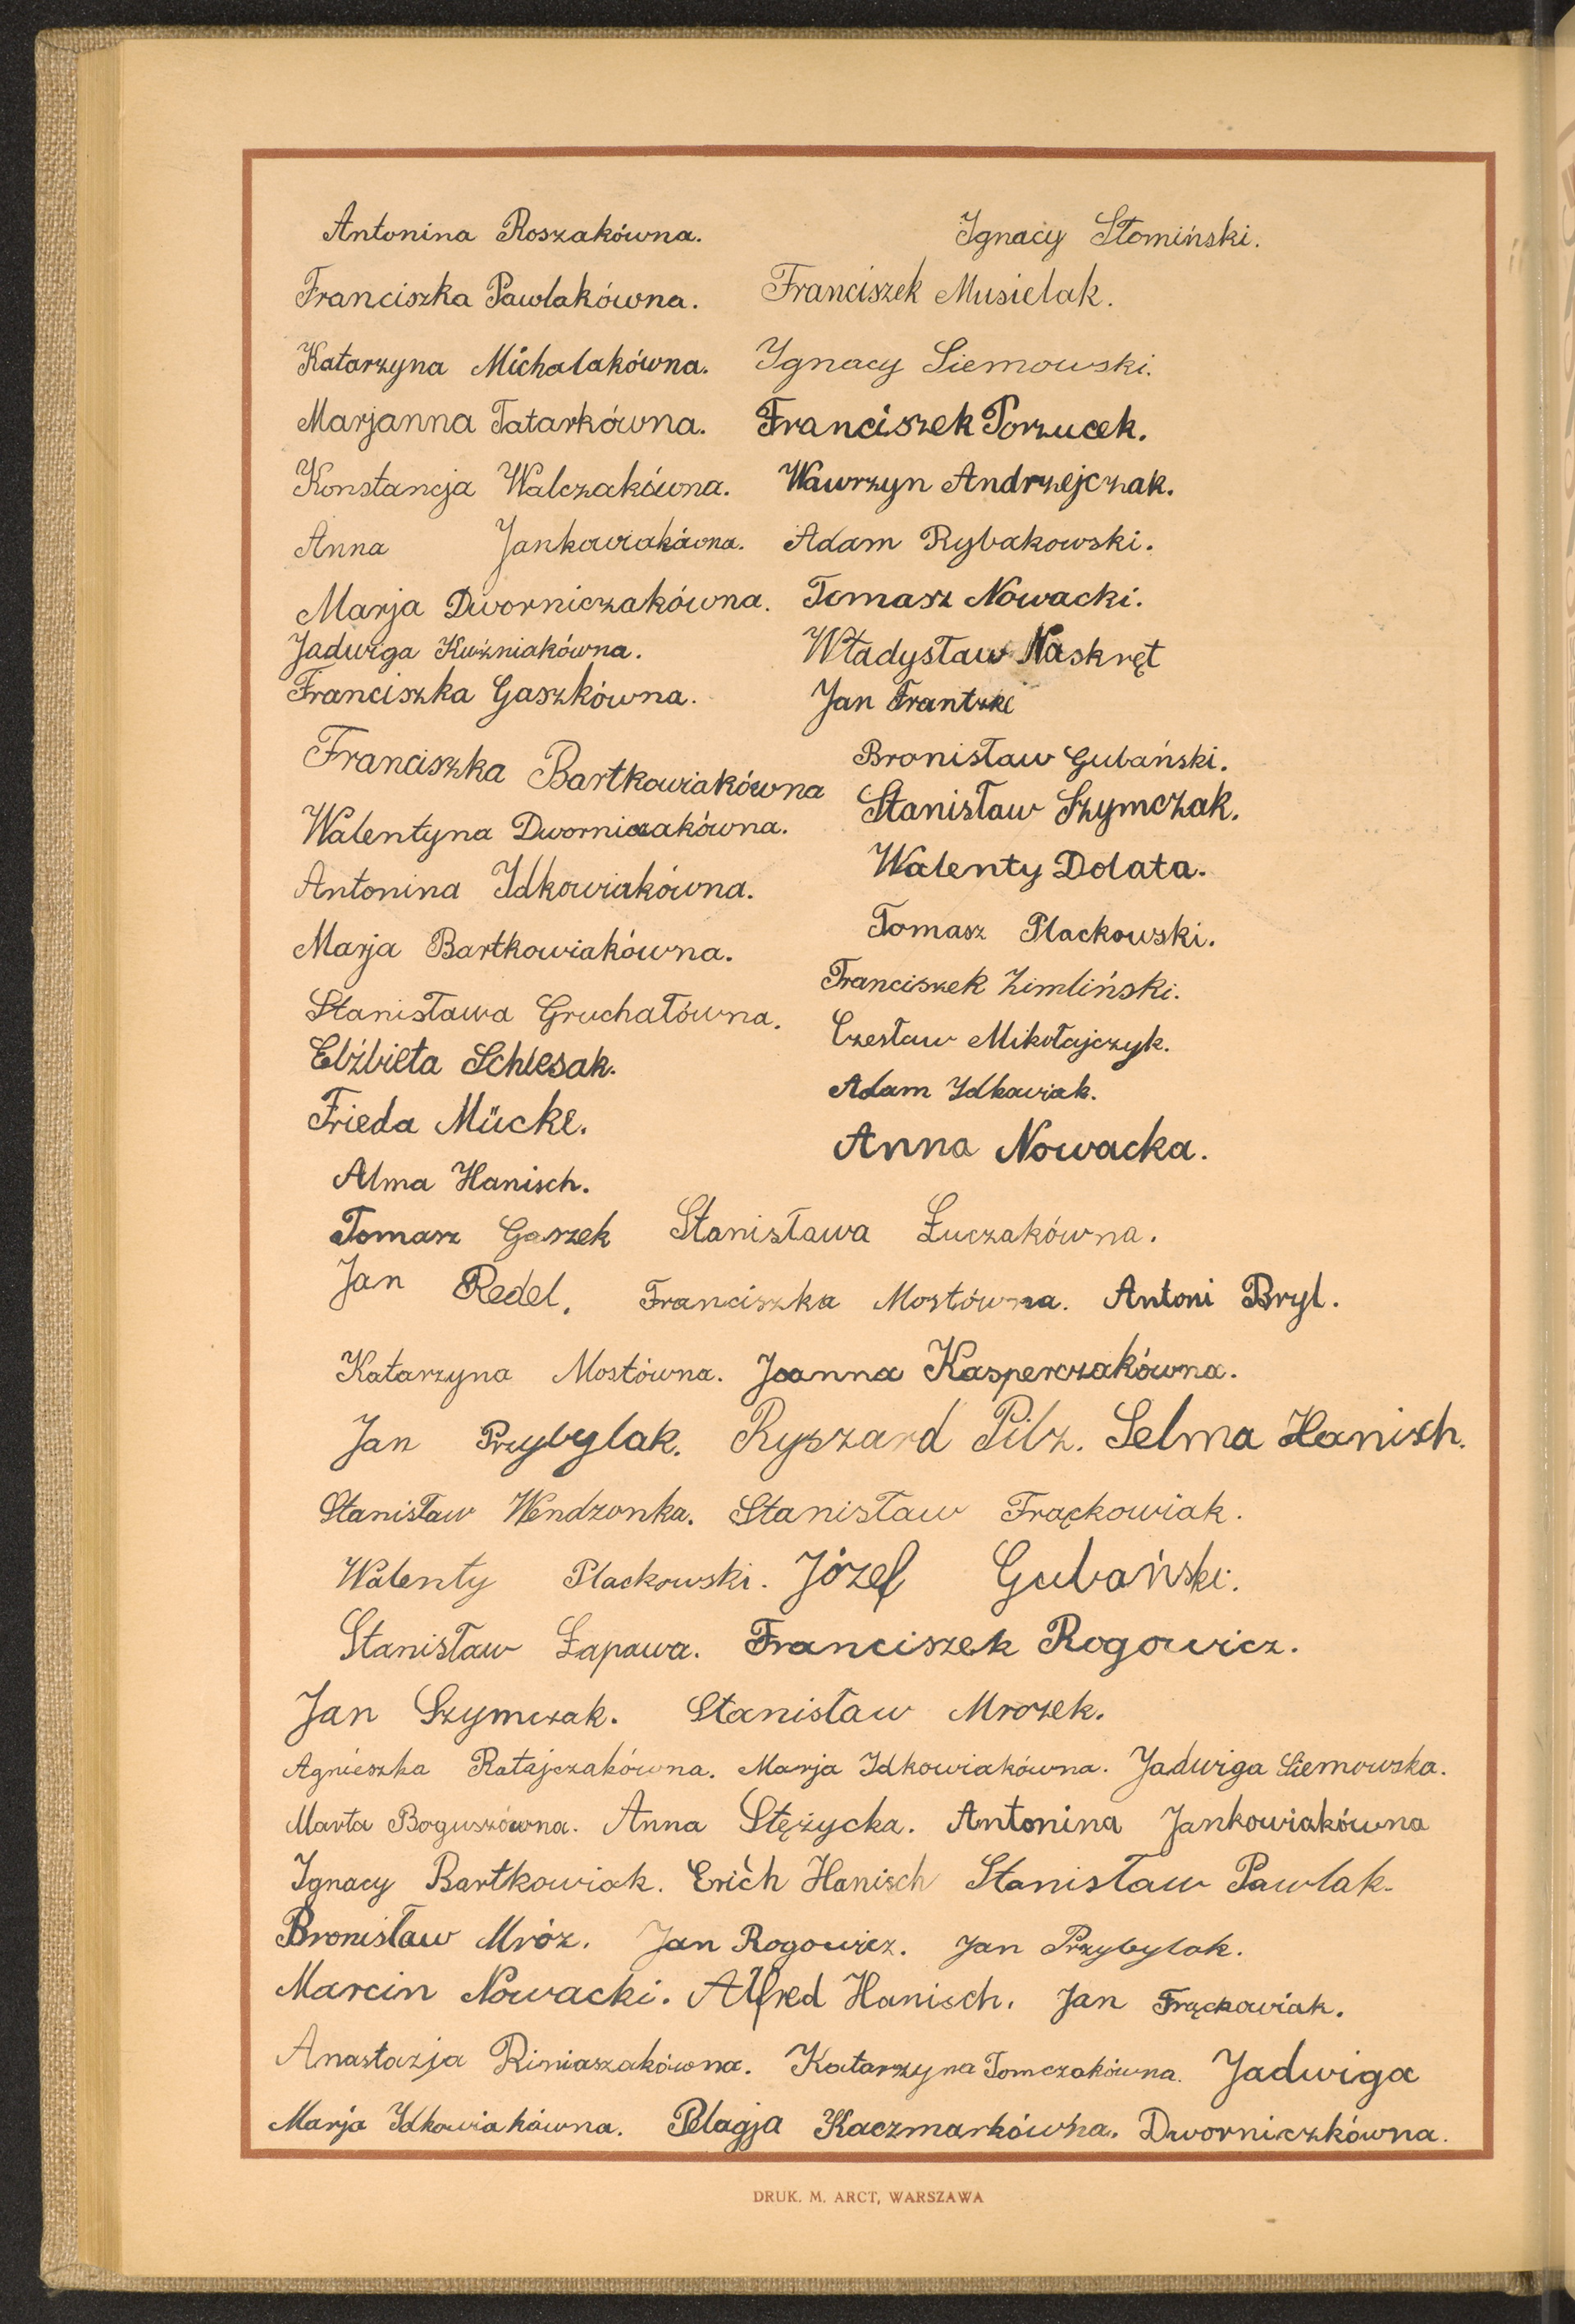 Antonina Roszakówna. Ignacy Słomiński.
Franciszka Pawlakówna. Franciszek Musielak.
Katarzyna Michalakówna. Ignacy Siemowski.
Marjanna Tatarkówna. Franciszek Porzucek.
Konstancja Walczakówna. Wawrzyn Andrzejczak.
Anna Jankowiakówna. Adam Rybakowski.
Marja Dworniczakówna. Tomasz Nowacki.
Jadwiga Kuźniakówna. Władysław Naskręt
Franciszka Gaszkówna. Jan Frantzke
Franciszka Bartkowiakówna Bronisław Gubański.
Walentyna Dworniczakówna. Stanisław Szymczak.
Antonina Idkowiakówna. Walenty Dolata.
Marja Bartkowiakówna. Tomasz Plackowski.
Stanisława Gruchałówna. Franciszek Zimliński.
Elżbieta Schlesak. Czesław Mikołajczyk.
Frieda Mücke. Adam Idkowiak.
Alma Hanisch. Anna Nowacka.
Tomasz Gaszek Stanisława Łuczakówna.
Jan Redel. Franciszka Mostówna. Antoni Bryl.
Katarzyna Mostówna. Joanna Kasperczakówna.
Jan Przybylak. Ryszard Pilz. Selma Hanisch.
Stanisław Wendzonka. Stanisław Frąckowiak.
Walenty Plackowski. Józef Gubański.
Stanisław Łapawa. Franciszek Rogowicz.
Jan Szymczak. Stanisław Mrozek.
Agnieszka Ratajczakówna. Marja Idkowiakówna. Jadwiga Siemowska.
Marta Boguszówna. Anna Stężycka. Antonina Jankowiakówna
Ignacy Bartkowiak. Erich Hanisch Stanisław Pawlak.
Bronisław Mróz. Jan Rogowicz. Jan Przybylak.
Marcin Nowacki. Alfred Hanisch. Jan Frąckowiak.
Anastazja Riminaszakówna. Katarzyna Tomczakówna. Jadwiga
Marja Idkowiakówna. Pelagja Kaczmarkówna. Dworniczkówna.
DRUK. M. ARCT, WARSZAWA